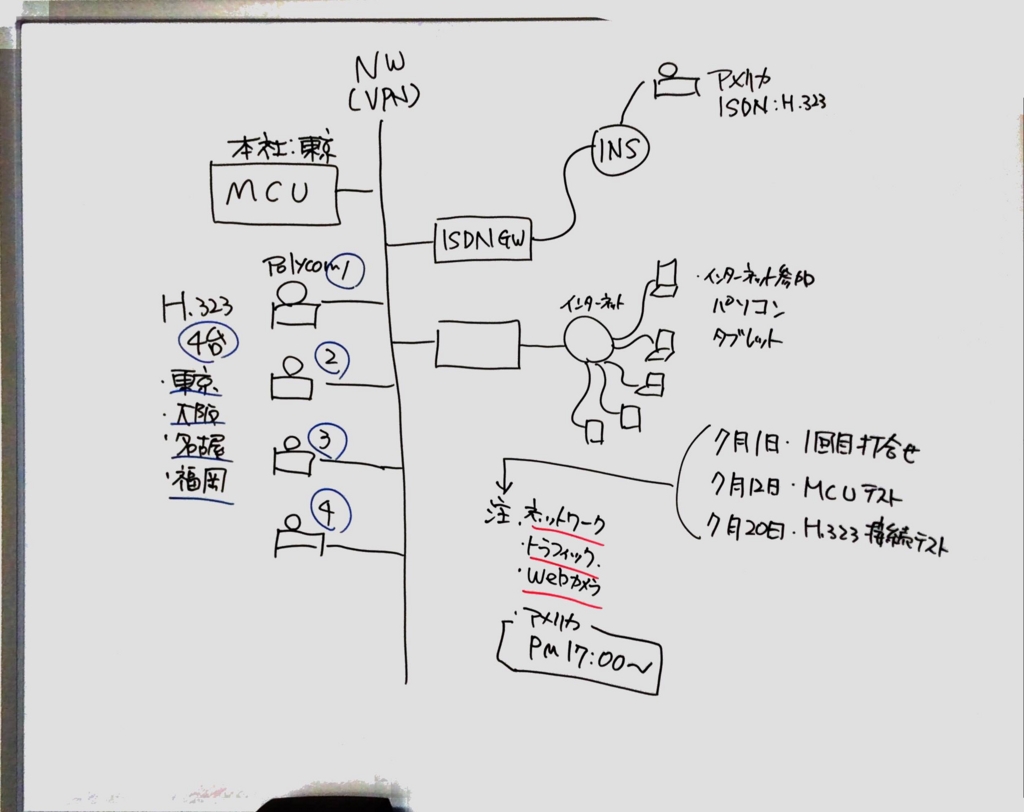 NW
(VPN)
本社:東京
MCU
アメリカ
ISDN:H.323
INS
ISDN GW
Polycom ①
H.323
4台
・東京
・大阪
・名古屋
・福岡
②
③
④
インターネット
・インターネット参加
パソコン
タブレット
7月1日・1回目打合せ
7月12日・MCUテスト
7月20日・H.323接続テスト
注・ネットワーク
・トラフィック
・Webカメラ
・アメリカ
PM 17:00〜